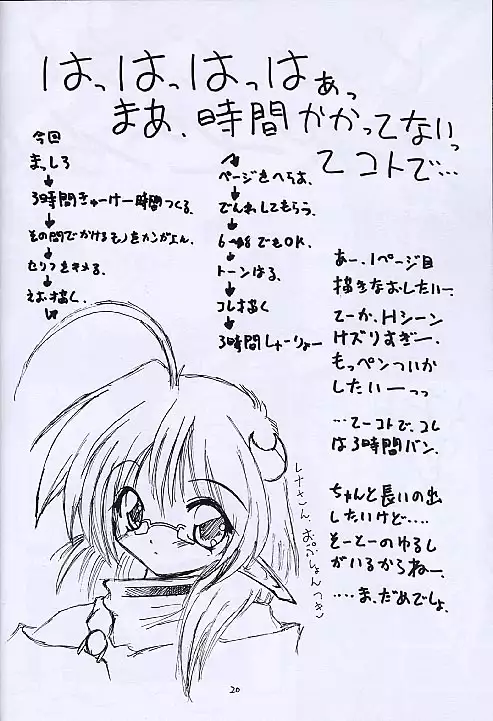 はっはっはっはぁっ
まあ、時間かかってないっ
てコトで…
今回
まっしろ
↓
3時間きゅーけー時間つくる。
↓
その間でかけるモノをカンガえる。
↓
セリフをきめる。
↓
えを描く。
↓
ページをへらす。
↓
でんわしてもらう。
↓
でもOK.
↓
トーンはる。
↓
コレ描く
↓
3時間しゅーりょー
あー、1ページ目
描きなおしたいー、
てーか、Hシーン
ケズリすぎー、
もっペンついか
したいーっっ
…てーコトで、コレ
は3時間バン。
ちゃんと長いの出
したいけど….
そーとーのゆるし
がいるからねー、
….ま、だめでしょ。
レナさん、おぷしょんつき
20